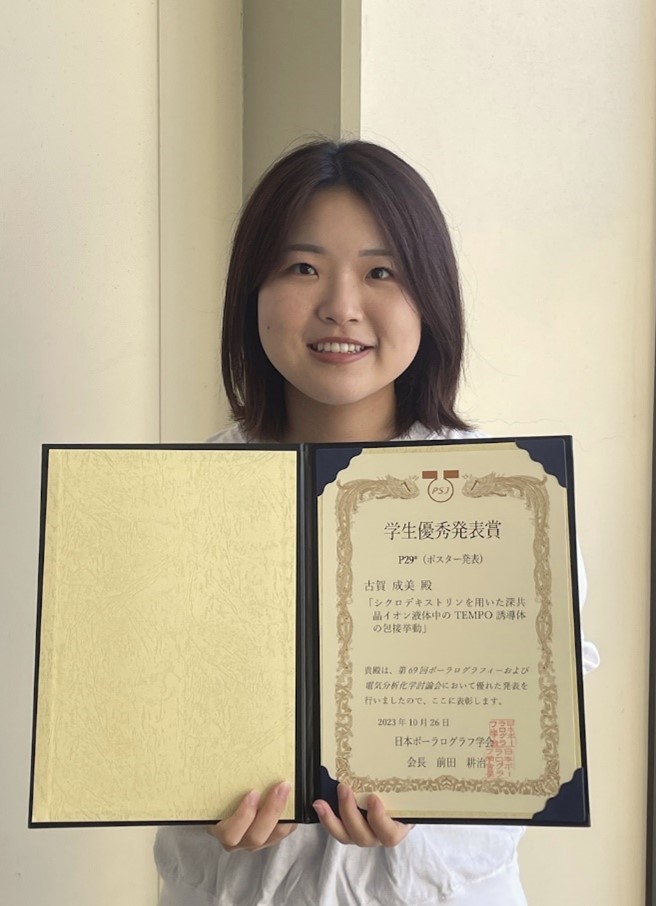 PSJ
学生優秀発表賞
P29*（ポスター発表）
古賀 成美 殿
「シクロデキストリンを用いた深共
晶イオン液体中の TEMPO 誘導体
の包接挙動」
貴殿は、第 69 回ポーラログラフィーおよび
電気分析化学討論会において優れた発表を
行いましたので、ここに表彰します。
2023 年 10 月 26 日
日本ポーラログラフ学会
会長 前田 耕治